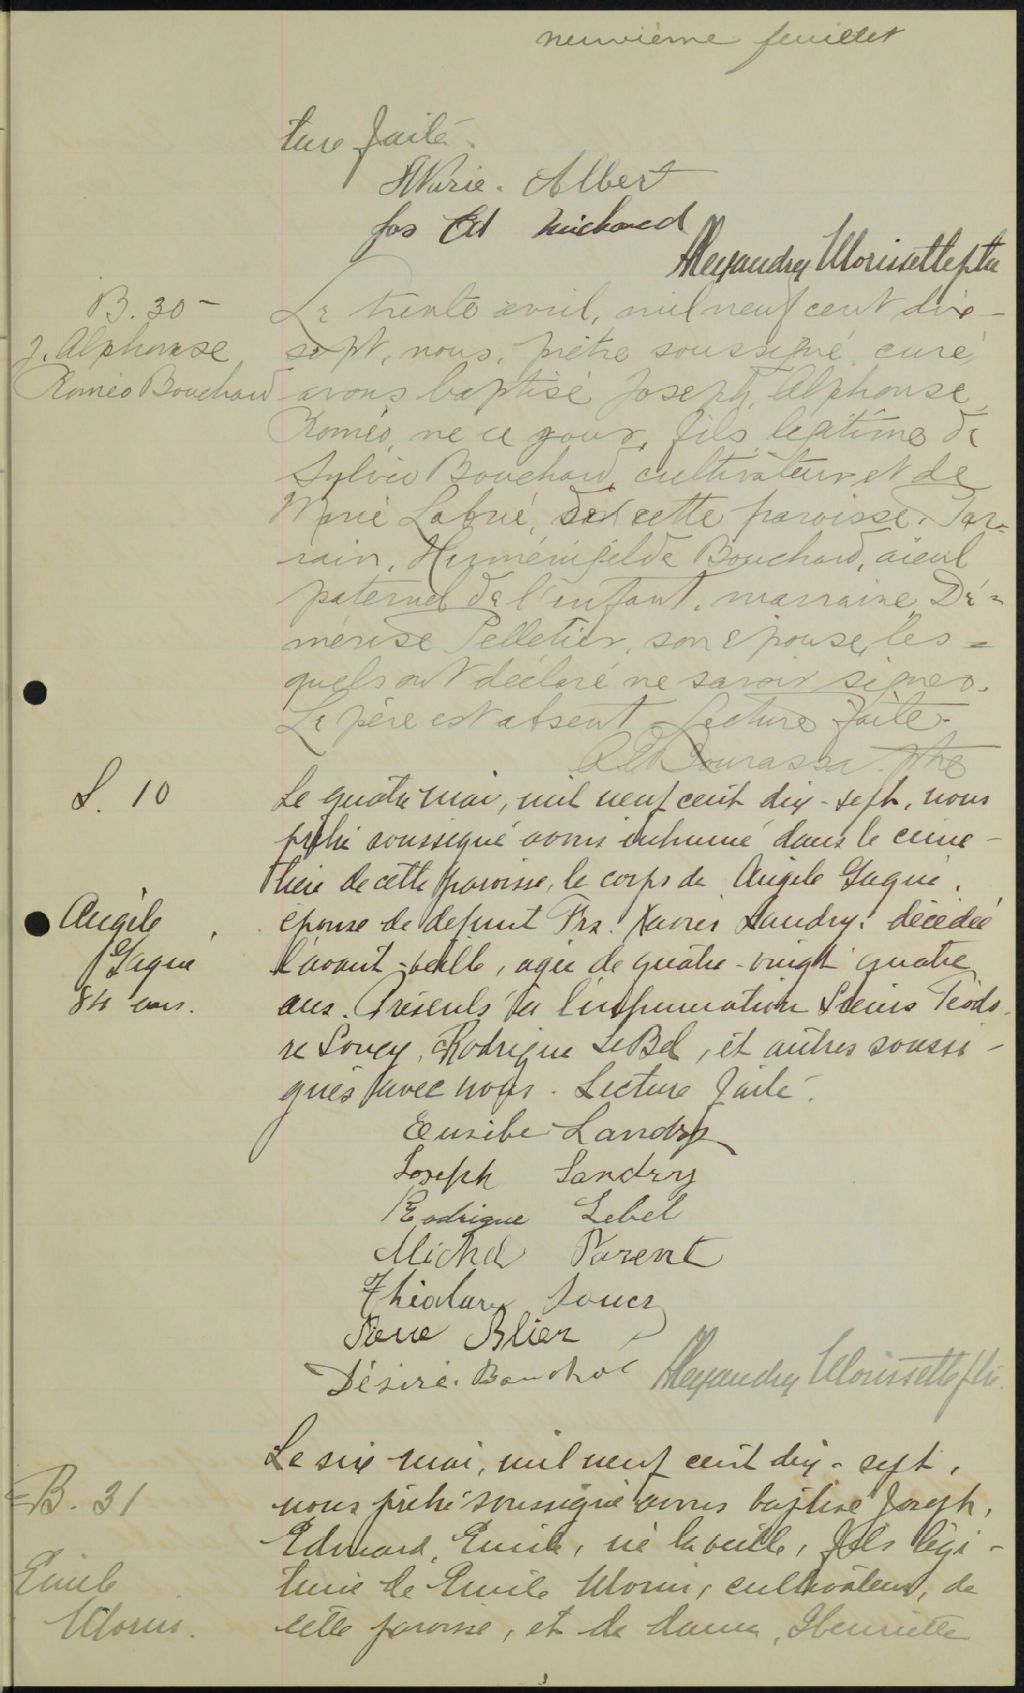 neuvième feuillet
ture faite.
Marie. Albert
Jos Ed Michaud
Alexandre Morissette ptre
B. 30 -
J. Alphonse
Roméo Bouchard
Le trente avril, mil neuf cent dix-
sept, nous, prêtre soussigné, curé,
avons baptisé Joseph, Alphonse
Roméo, né ce jour, fils légitime de
Sylvio Bouchard, cultivateur et de
Marie Labrie, de cette paroisse. Par-
rain, Herménégilde Bouchard, aïeul
paternel de l'enfant, marraine, Dé-
merise Pelletier, son épouse, les-
quels ont déclaré ne savoir signer.
Le père est absent. Lecture faite.
Bourassa ptre
S. 10
Angèle
Gagné
84 ans.
Le quatre mai, mil neuf cent dix-sept, nous
prêtre soussigné avons inhumé dans le cime-
tière de cette paroisse, le corps de Angèle Gagné,
épouse de défunt Frs. Xavier Landry, décédée
l'avant-veille, agée de quatre-vingt quatre
ans. Présents à l'inhumation Sieurs Téodo-
re Soucy, Rodrigue LeBel, et autres soussi-
gnés avec nous. Lecture faite.
Eusèbe Landry
Joseph Landry
Rodrigue Lebel
Michel Parent
Théodore Soucy
Pierre Blier
Désiré. Bouchard
Alexandre Morissette ptre.
B. 31
Emile
Morin.
Le six mai, mil neuf cent dix-sept,
nous prêtre soussigné avons baptisé Joseph,
Edouard, Emile, né la veille, fils légi-
time de Emile Morin, cultivateur, de
cette paroisse, et de dame, Henriette